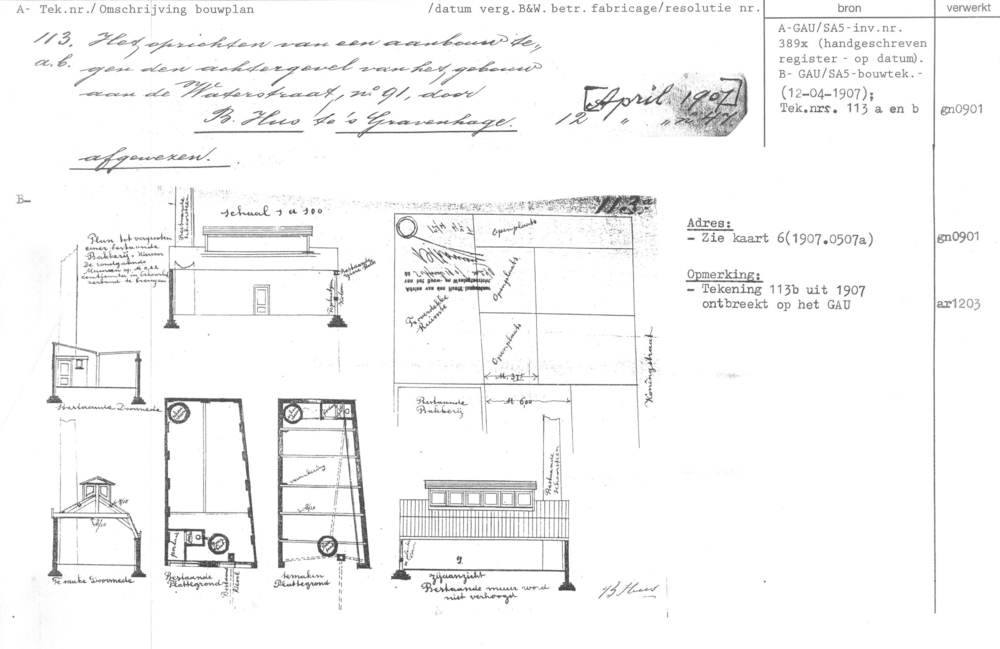 A- Tek.nr./Omschrijving bouwplan /datum verg.B&W.betr.fabricage/resolutie nr. bron verwerkt
113. Het oprichten van een aanbouw te,,
a.b. gen den achtergevel van het gebouw
aan de Waterstraat, no 91, door
B. Hus te 's Gravenhage.
[April 1907]
12 " " no 47.
afgewezen.
A-GAU/SA5-inv.nr.
389x (handgeschreven
register - op datum).
B- GAU/SA5-bouwtek.-
(12-04-1907);
Tek.nrs. 113 a en b
gn0901
B-
113a
schaal 1 a 100
Bestaande
schoorsteen
Plan tot vergrooten
eener bestaande
Bakkerij.
Openplaats
Openplaats
Openplaats
Te overdekke
Ruimte
Koningstraat
M. 3.75
M 6,00
Bestaande
Bakkerij
Bestaande Doorsnede
Te make Doorsnede
privaat
Bestaande
Plattegrond
te maken
Plattegrond
Bestaande
schoorsteen
zijaanzicht
Bestaande muur word
niet verhoogd
B Hus
Adres:
- Zie kaart 6(1907.0507a)
gn0901
Opmerking:
- Tekening 113b uit 1907
ontbreekt op het GAU
ar1203